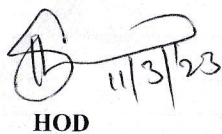 11/3/23
HOD